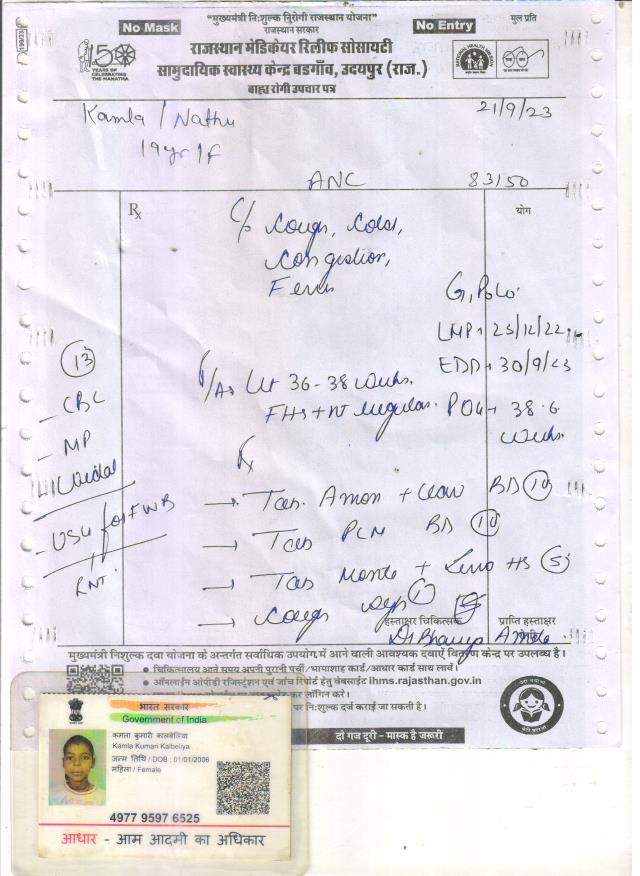 No Mask
"मुख्यमंत्री निःशुल्क निरोगी राजस्थान योजना"
राजस्थान सरकार
No Entry
मुल प्रति
राजस्थान मेडिकेयर रिलीफ सोसायटी
सामुदायिक स्वास्थ्य केन्द्र बडगाँव, उदयपुर (राज.)
बाह्य रोगी उपचार पत्र
150
YEARS OF
CELEBRATING
THE MAHATMA
Kamla / Nathu
21/9/23
19yr/F
ANC
83/50
Rx
योग
C/o Cough, Cold,
Congestion,
Fever
G1P0L0
LMP 25/12/22
EDD 30/9/23
P/A Ut 36-38 weeks.
FHS + N regular.
POG 38.6
weeks.
13
- CBC
- MP
- Widal
- USG for FWB
RNT.
Rx
→ Tab. Amox + Clav BD 10
→ Tab PCM BD 10
→ Tab Monte + Levo HS 5
→ Cough Syp 1
हस्ताक्षर चिकित्सक
प्राप्ति हस्ताक्षर
मुख्यमंत्री निःशुल्क दवा योजना के अन्तर्गत सर्वाधिक उपयोग में आने वाली आवश्यक दवाऐं वितरण केन्द्र पर उपलब्ध है।
● चिकित्सालय आते समय अपनी पुरानी पर्ची/भामाशाह कार्ड/आधार कार्ड साथ लावें।
● ऑनलाईन ओपीडी रजिस्ट्रेशन एवं जांच रिपोर्ट हेतु वेबसाईट ihms.rajasthan.gov.in
कर लॉगिन करे।
पर निःशुल्क दर्ज कराई जा सकती है।
दो गज दूरी - मास्क है जरूरी
भारत सरकार
Government of India
कमला कुमारी कालबेलिया
Kamla Kumari Kalbeliya
जन्म तिथि / DOB : 01/01/2006
महिला / Female
4977 9597 6525
आधार - आम आदमी का अधिकार